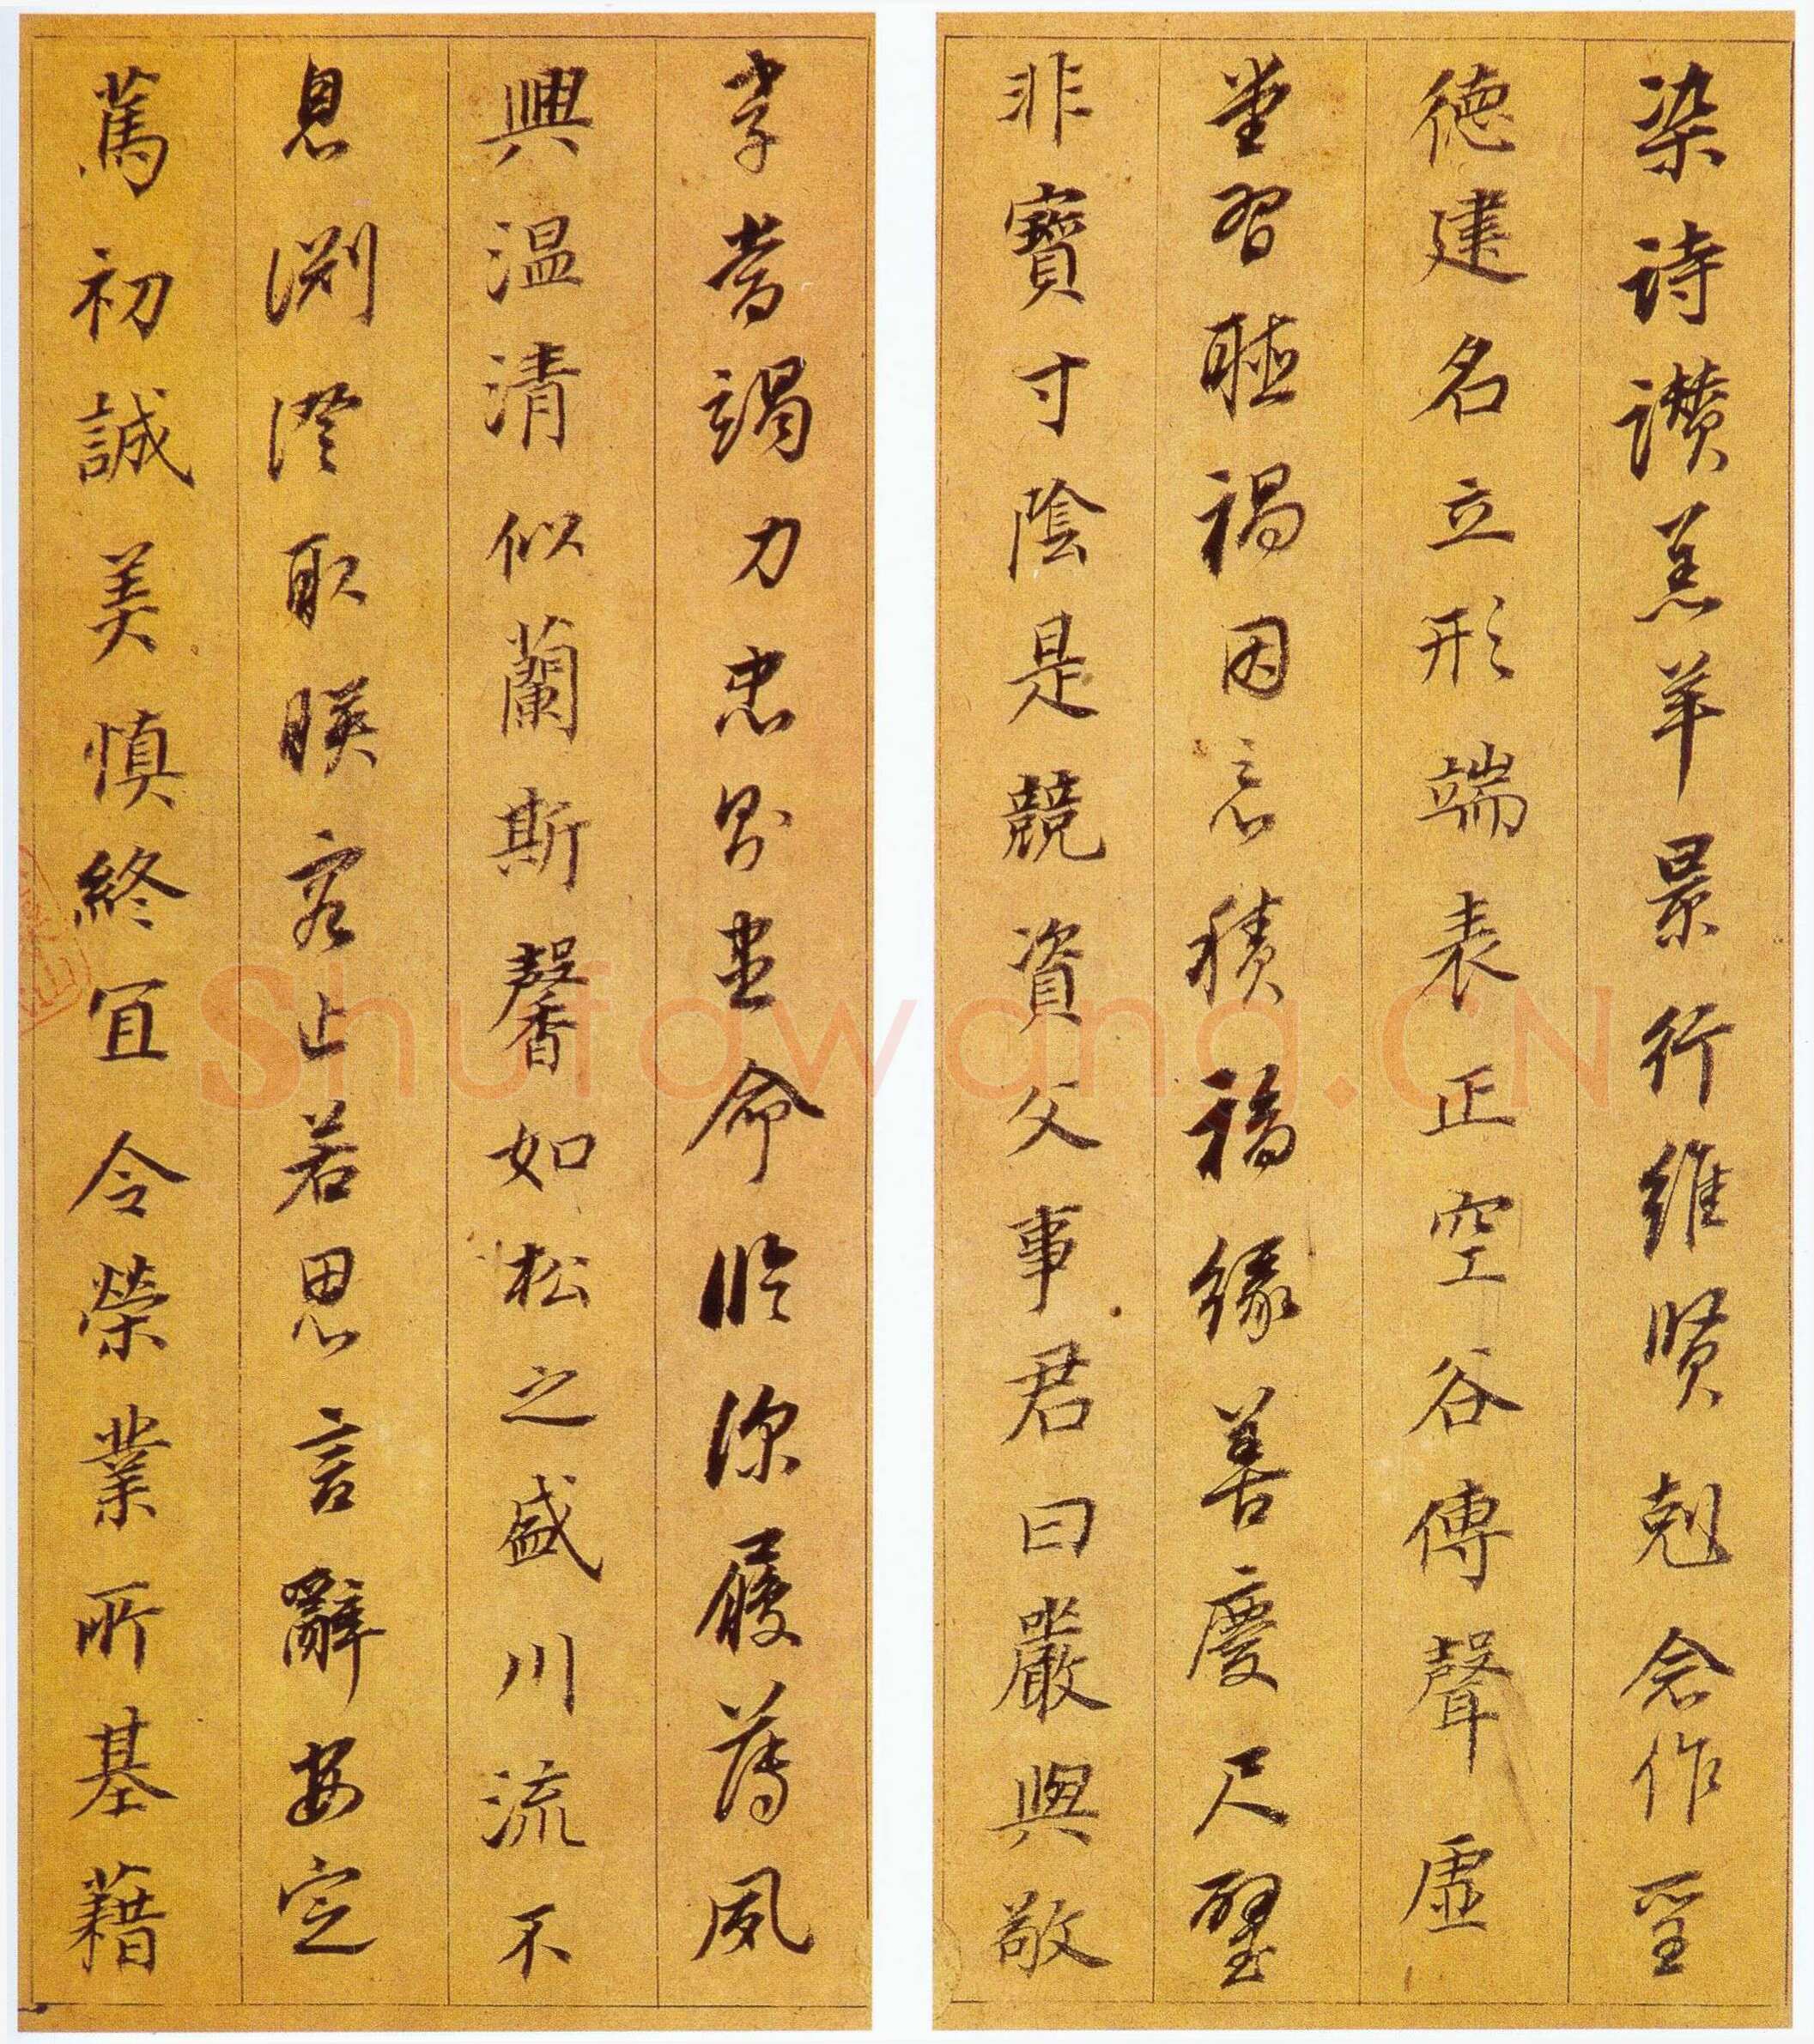 染詩讃羔羊景行維賢剋念作聖
德建名立形端表正空谷傳聲虛
堂習聽禍因惡積福緣善慶尺璧
非寶寸陰是競資父事君曰嚴與敬
孝當竭力忠則盡命臨深履薄夙
興溫清似蘭斯馨如松之盛川流不
息淵澄取暎容止若思言辭安定
篤初誠美慎終宜令榮業所基藉
Shufawang.CN